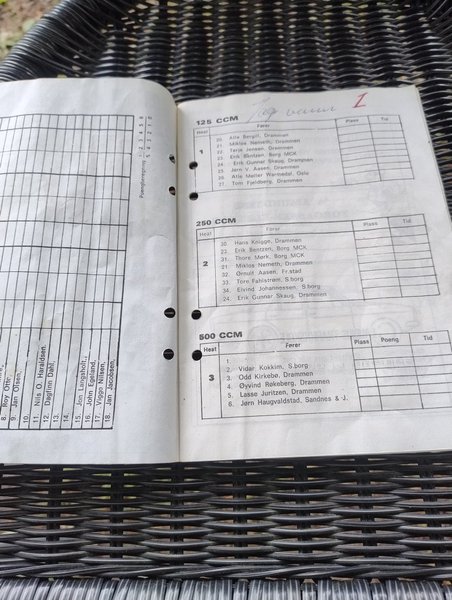 Poengberegning: 1 2 3 4 5 6
5 4 3 2 1 0
8. Roy Otto
9. Jan Olsen,
10.
11. Nils O. Haraldsen,
12. Dagfinn Dahl,
13.
14.
15. Jon Langsholt,
16. John Egeland,
17. Viggo Nilsen,
18. Jan Jacobsen,
Jeg vann 1
125 CCM
Heat Fører Plass Tid
1
20. Atle Bergli, Drammen
21. Miklos Nemeth, Drammen
22. Terje Jensen, Drammen
23. Erik Bentzen, Borg MCK
24. Erik Gunnar Skaug, Drammen
25. Jørn V. Aasen, Drammen
26. Atle Møller Warmedal, Oslo
27. Tom Fjeldberg, Drammen
250 CCM
Heat Fører Plass Tid
2
30. Hans Knigge, Drammen
23. Erik Bentzen, Borg MCK
31. Thore Mørk, Borg MCK
21. Miklos Nemeth, Drammen
32. Ørnulf Aasen, Fr.stad
33. Tore Fahlstrøm, S.borg
34. Eivind Johannessen, S.borg
24. Erik Gunnar Skaug, Drammen
500 CCM
Heat Fører Plass Poeng Tid
3
1.
2. Vidar Kokkim, S.borg
3. Odd Kirkebø, Drammen
4. Øyvind Røkeberg, Drammen
5. Lasse Juritzen, Drammen
6. Jørn Haugvaldstad, Sandnes & J.